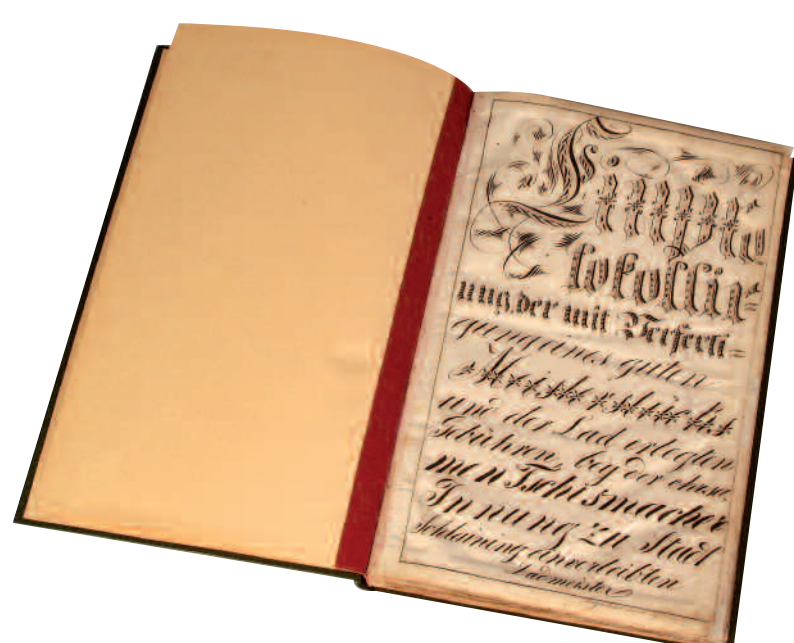 Einpro
tokollir=
ung der mit Verferti=
gung eines guten
Meisterstücks
und der Lad erlegten
Gebühren, bey der ehrsa=
men Tschismacher
Innung zu Stadt
Schlaining einverleibten
Ladmeister